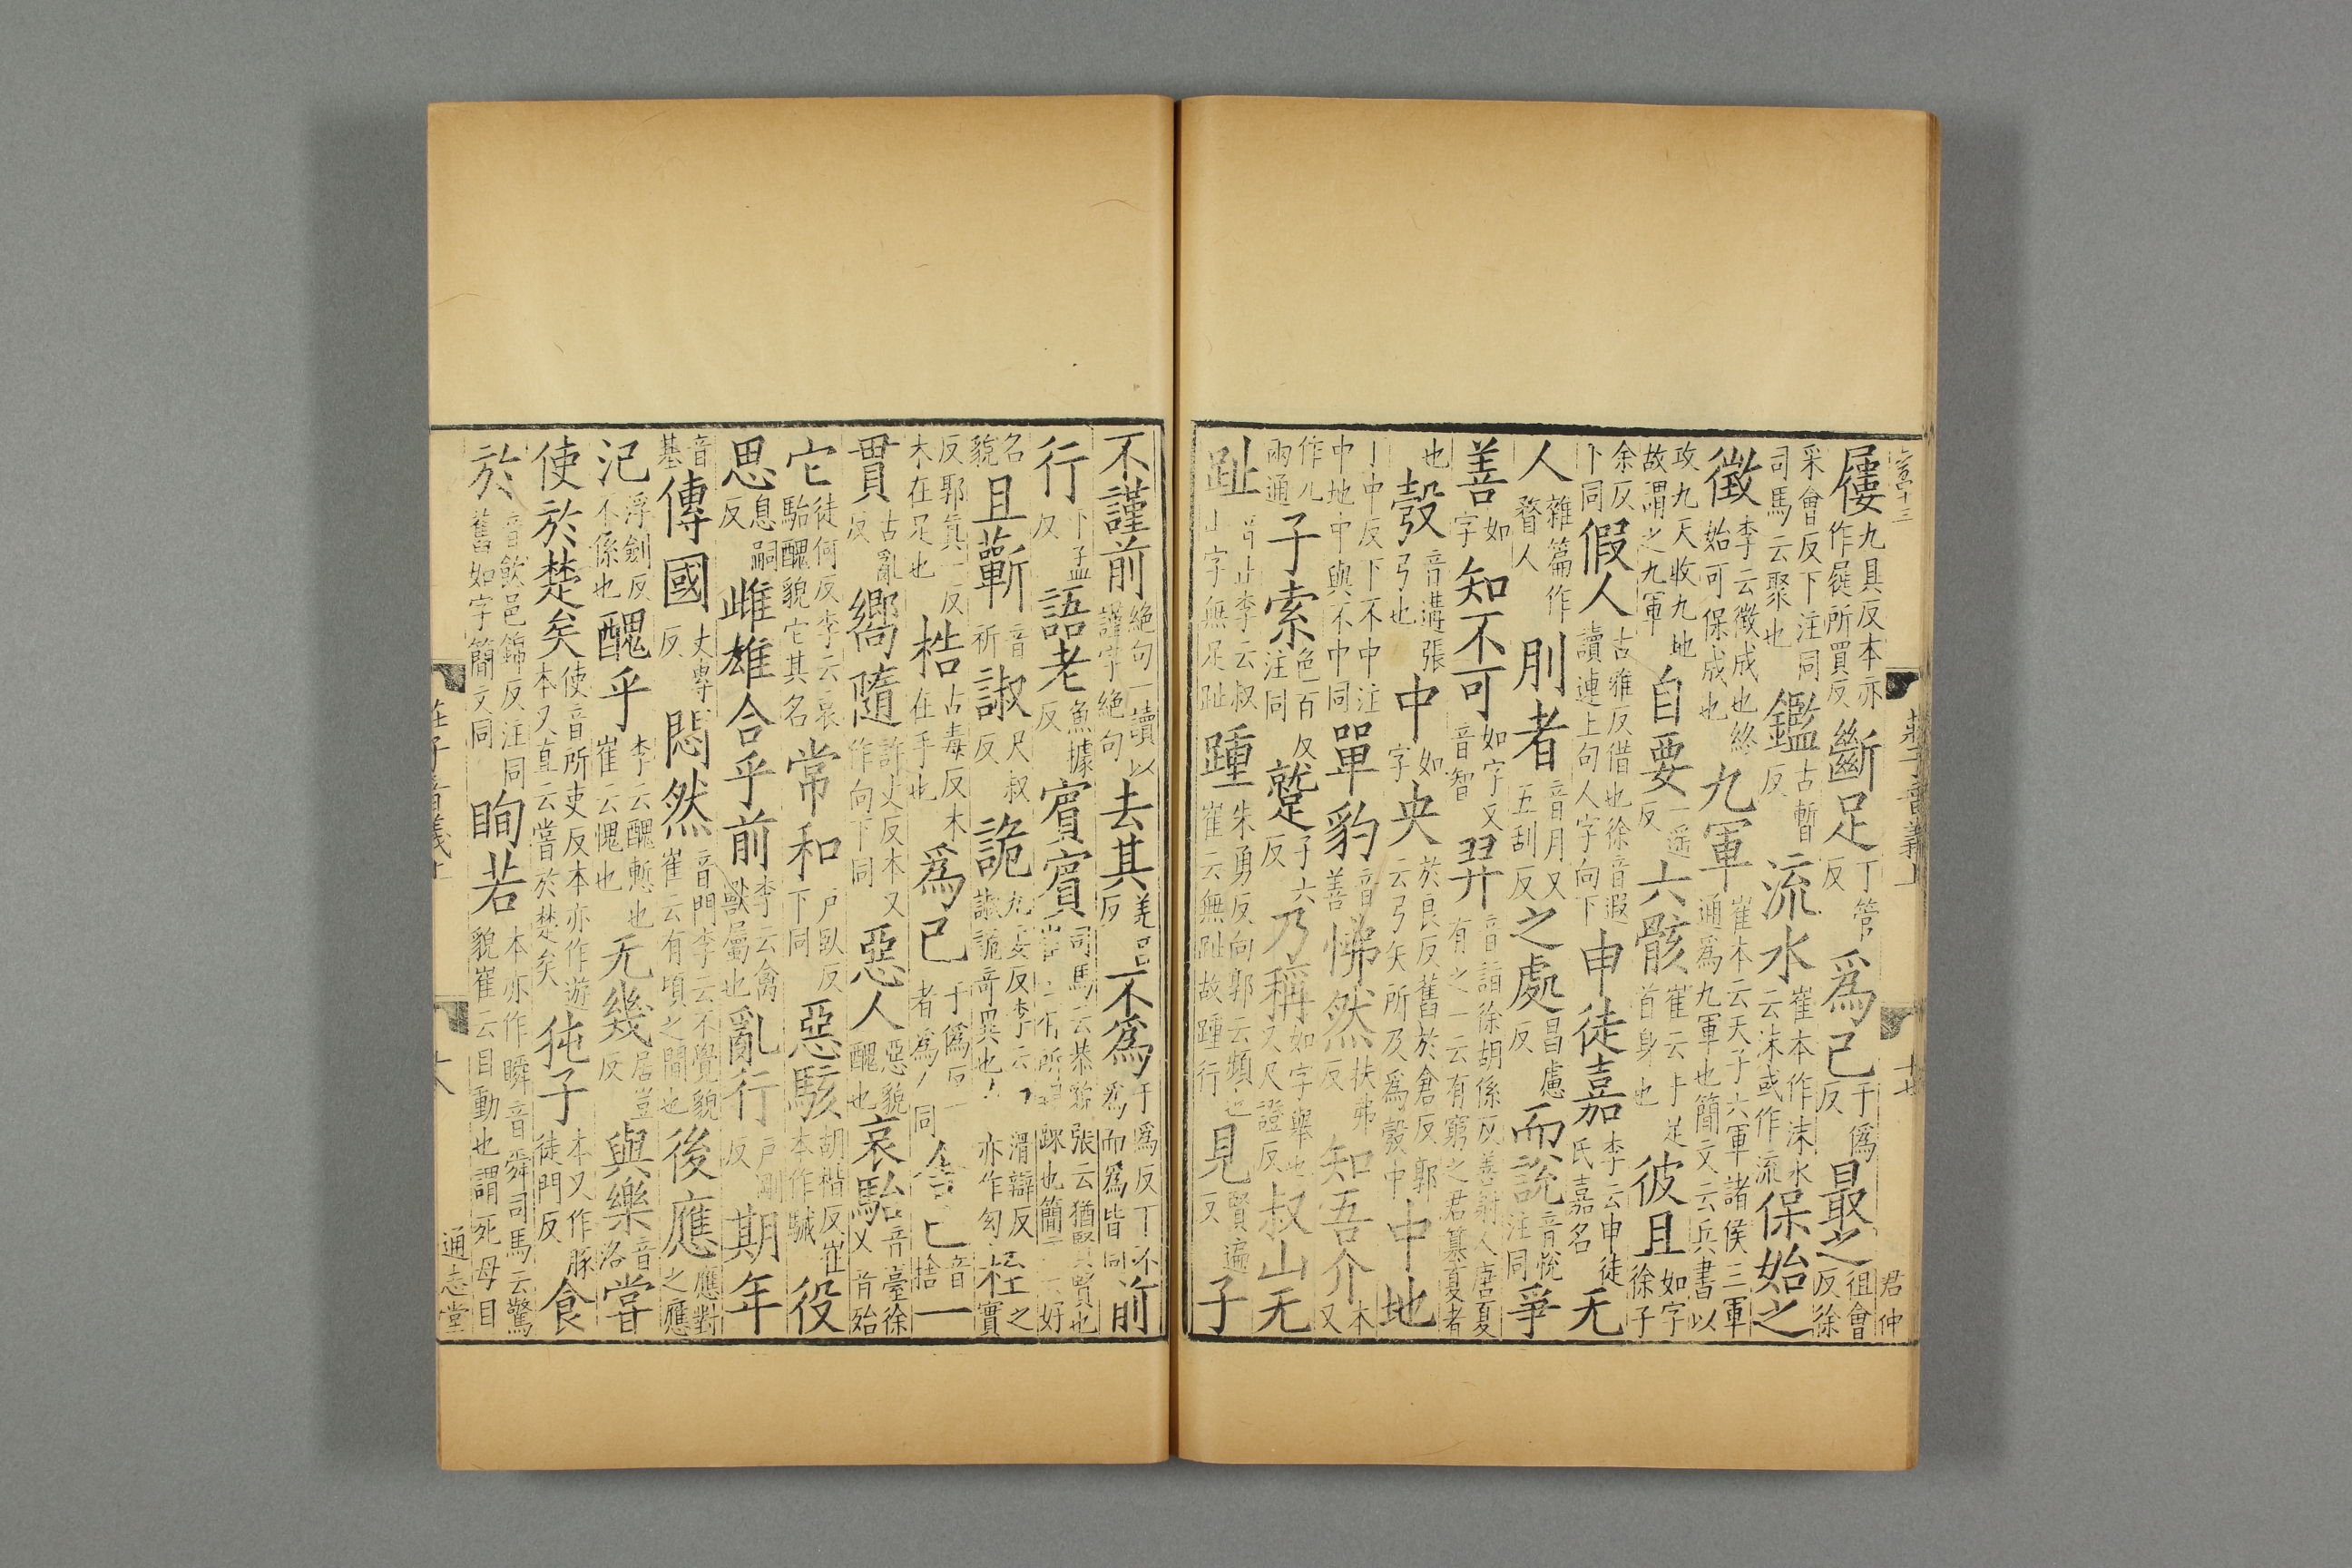 莊子音義上
十七
君仲
屨九具反本亦作屣所買反斷足丁管反為己于偽反最之徂會反徐
采會反下注同司馬云聚也鑑古暫反流水崔本作沬水云沬或作流保始之
徵李云徵成也終始可保成也九軍崔本云天子六軍諸侯三軍通為九軍也簡文云兵書以
攻九天收九地故謂之九軍自要一遥反六骸崔云手足首身也彼且如字徐子
余反下同假人古雅反借也徐音遐讀連上句人字向下申徒嘉李云申徒氏嘉名无
人雜篇作瞀人刖者音月又五刮反之處昌慮反而說音悅注同爭
善如字知不可如字又音智羿音詣徐胡係反善射人唐夏有之一云有窮之君篡夏者
也彀音遘張弓也中如字央於良反舊於倉反郭云弓矢所及為彀中中地
丁中反下不中注中地中與不中同單豹音善怫然扶弗反知吾介本又
作兀兩通子索色百反注同蹵子六反乃稱如字舉也又尺證反叔山无
趾音止李云叔山字無足趾踵朱勇反向郭云頻也崔云無趾故踵行見賢遍反子
不謹前絕句一讀以謹字絕句去其羌呂反不為于偽反下不為而為皆同前
行下孟反語老魚據反賓賓司馬云恭貌張云猶賢賢也崔云有所踈也簡文云好
名貌且蘄音祈諔尺叔反詭九委反李云諔詭奇異也
反郭真一反木在足也桎之實桔古毒反木在手也為己于偽反者為同舍己音捨一
貫古亂反嚮隨許丈反本又作向下同惡人惡貌醜也哀駘音臺徐又音殆
它徒何反李云哀駘醜貌它其名常和戶臥反下同惡駭胡楷反崔本作駴役
思息嗣反雌雄合乎前李云禽獸屬也亂行戶剛反期年
音基傳國丈專反悶然音門李云不覺貌崔云有頃之間也後應應對之應
氾浮劍反不係也醜乎李云醜慙也崔云愧也无幾居豈反與樂音洛嘗
使於楚矣使音所吏反本亦作遊本又直云嘗於楚矣㹠子本又作豚徒門反食
於音飲邑錦反注同舊如字簡文同眴若本亦作瞬音舜司馬云驚貌崔云目動也謂死母目
莊子音義上
十八
通志堂